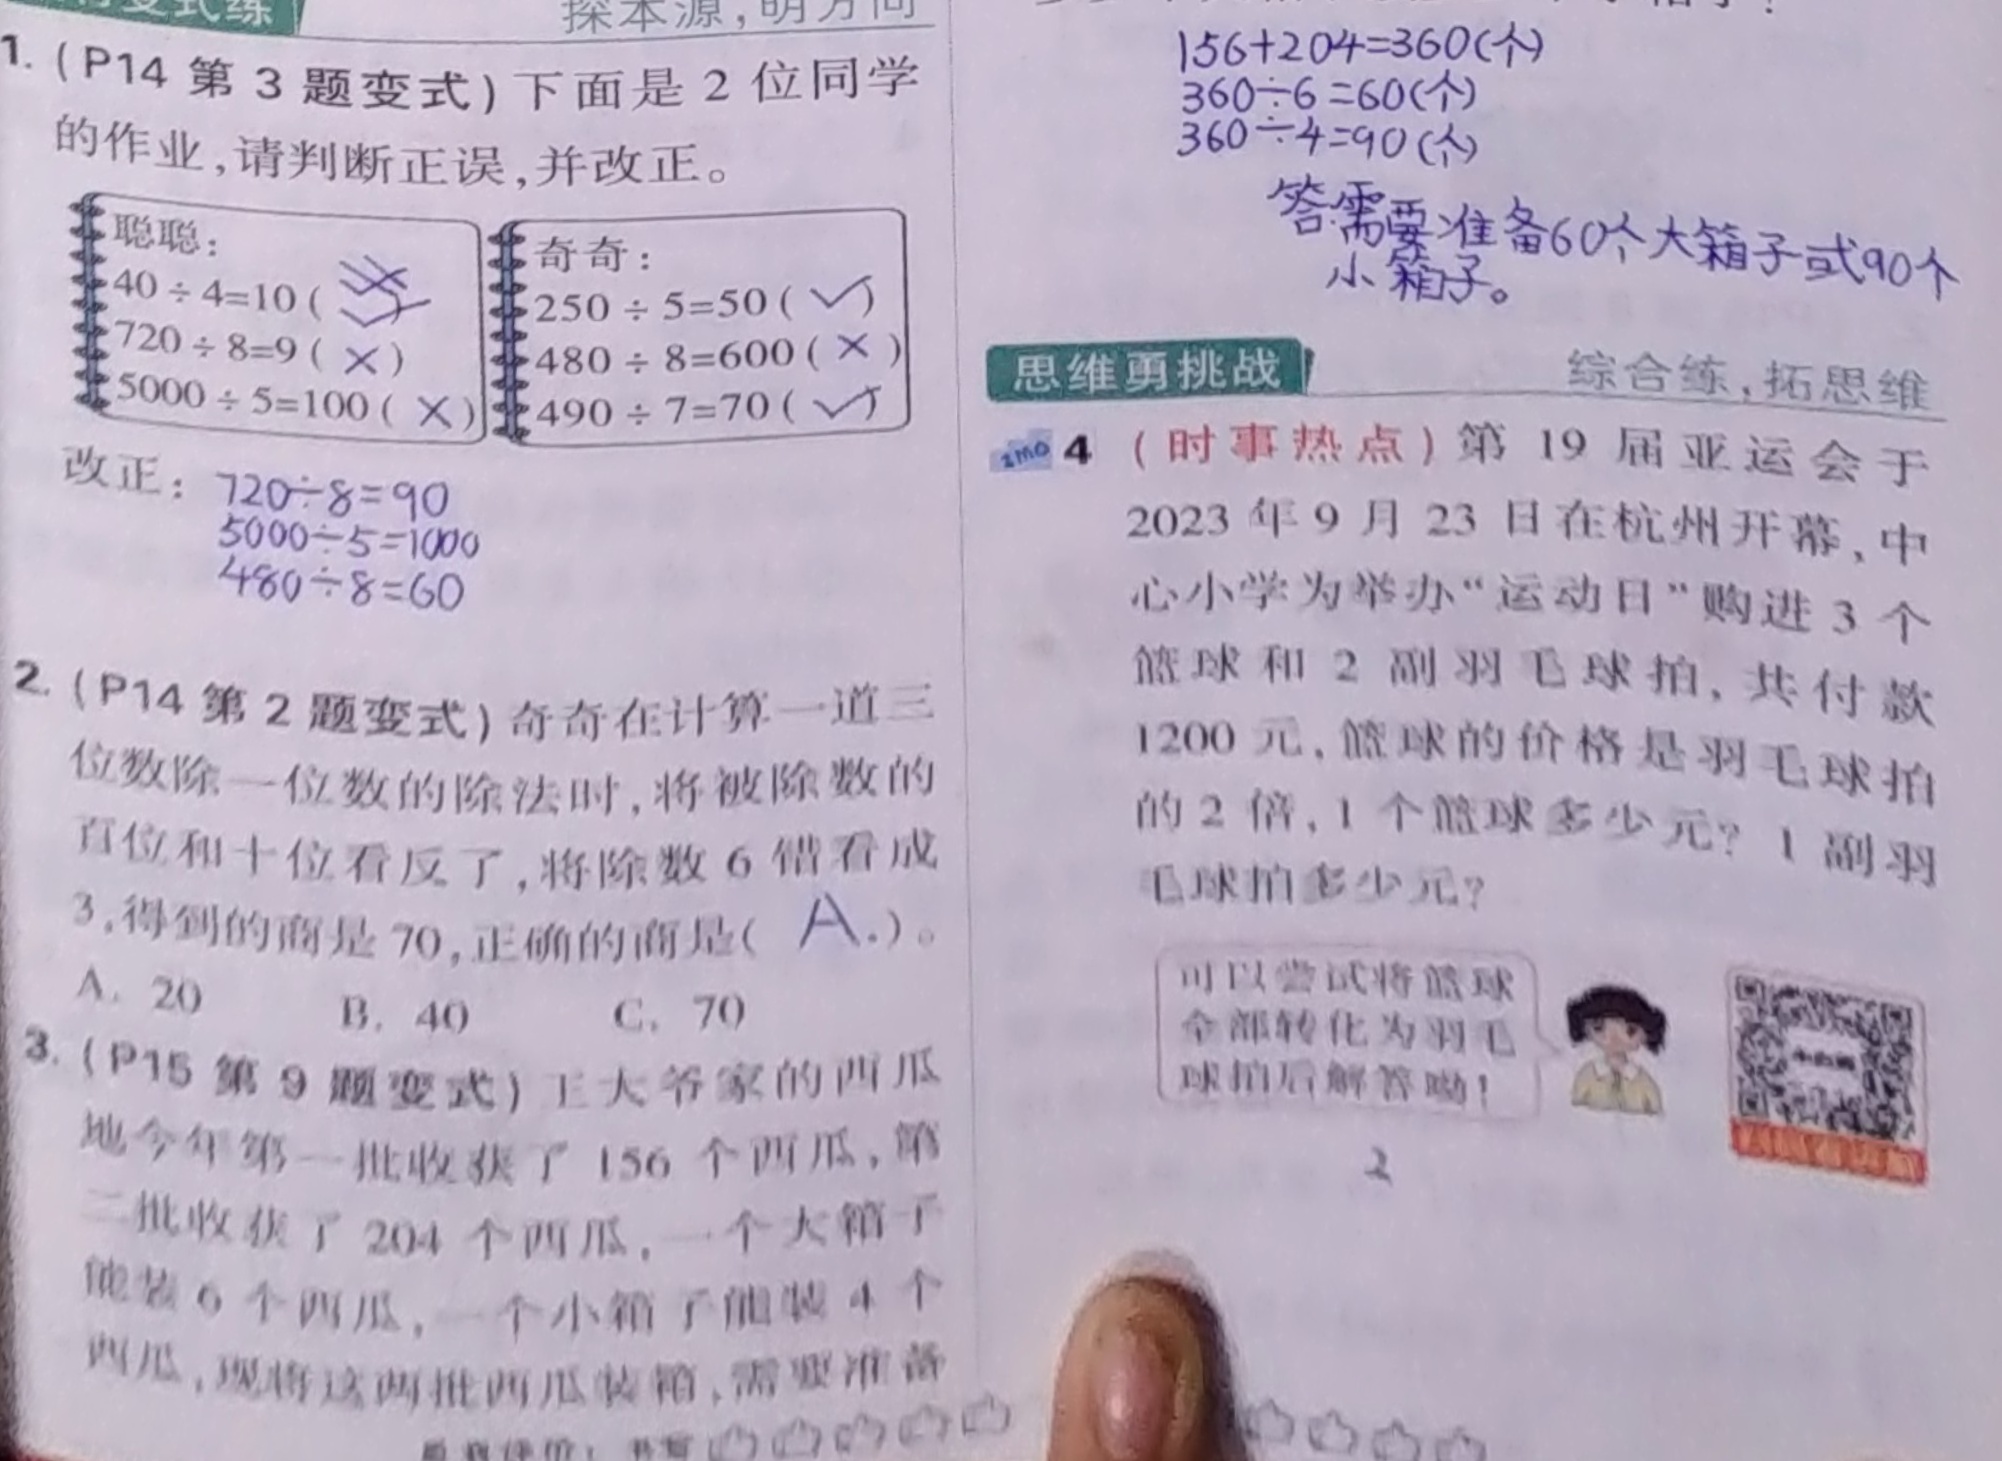 探本源,明方向
1. (P14 第 3 题变式) 下面是 2 位同学
的作业,请判断正误,并改正。
聪聪:
40 ÷ 4=10 ( ✓ )
720 ÷ 8=9 ( × )
5000 ÷ 5=100 ( × )
奇奇:
250 ÷ 5=50 ( ✓ )
480 ÷ 8=600 ( × )
490 ÷ 7=70 ( ✓ )
改正: 720÷8=90
5000÷5=1000
480÷8=60
2. (P14 第 2 题变式) 奇奇在计算一道三
位数除一位数的除法时,将被除数的
百位和十位看反了,将除数 6 错看成
3,得到的商是 70,正确的商是( A. )。
A. 20 B. 40 C. 70
3. (P15 第 9 题变式) 王大爷家的西瓜
地今年第一批收获了 156 个西瓜,第
二批收获了 204 个西瓜,一个大箱子
能装 6 个西瓜,一个小箱子能装 4 个
西瓜,现将这两批西瓜装箱,需要准备
156+204=360(个)
360÷6=60(个)
360÷4=90(个)
答:需要准备60个大箱子或90个
小箱子。
思维勇挑战 综合练,拓思维
4 (时事热点) 第 19 届亚运会于
2023 年 9 月 23 日在杭州开幕,中
心小学为举办“运动日”购进 3 个
篮球和 2 副羽毛球拍,共付款
1200 元,篮球的价格是羽毛球拍
的 2 倍,1 个篮球多少元? 1 副羽
毛球拍多少元?
可以尝试将篮球
全部转化为羽毛
球拍后解答呦!
2